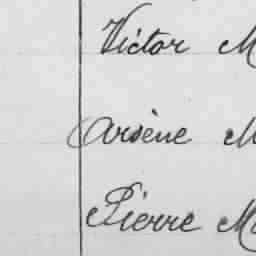 Victor M
Arsène M
Pierre Ma